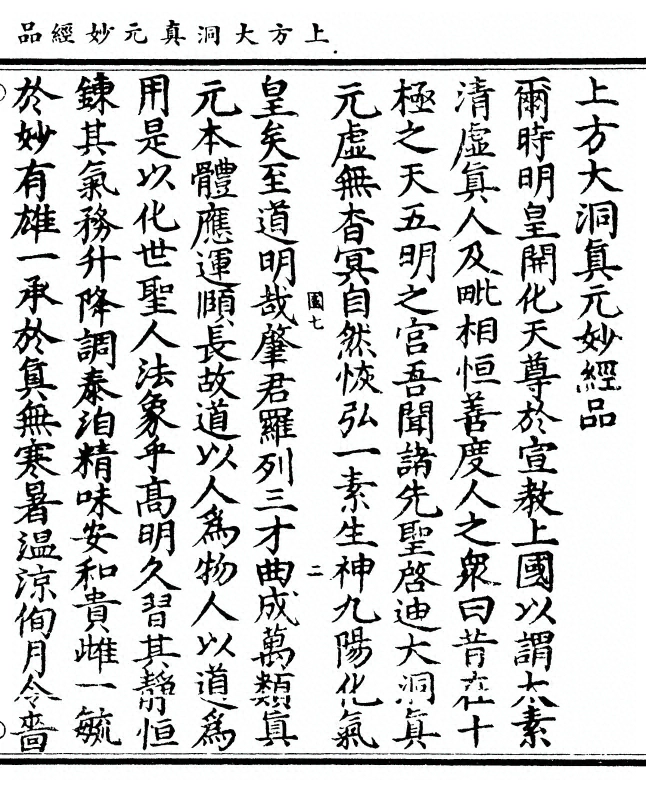 上方大洞真元妙經品
上方大洞眞元妙經品
爾時明皇開化天尊於宣教上國以謂太素
清虛眞人及毗相恒善度人之衆曰昔在十
極之天五明之宮吾聞諸先聖啓迪大洞眞
元虛無杳冥自然恢弘一素生神九陽化氣
國七 二
皇矣至道明哉肇君羅列三才曲成萬類眞
元本體應運頤長故道以人爲物人以道爲
用是以化世聖人法象乎高明久習其靜恒
鍊其氣務升降調泰洎精味安和貴雌一毓
於妙有雄一承於眞無寒暑温涼侚月令嗇